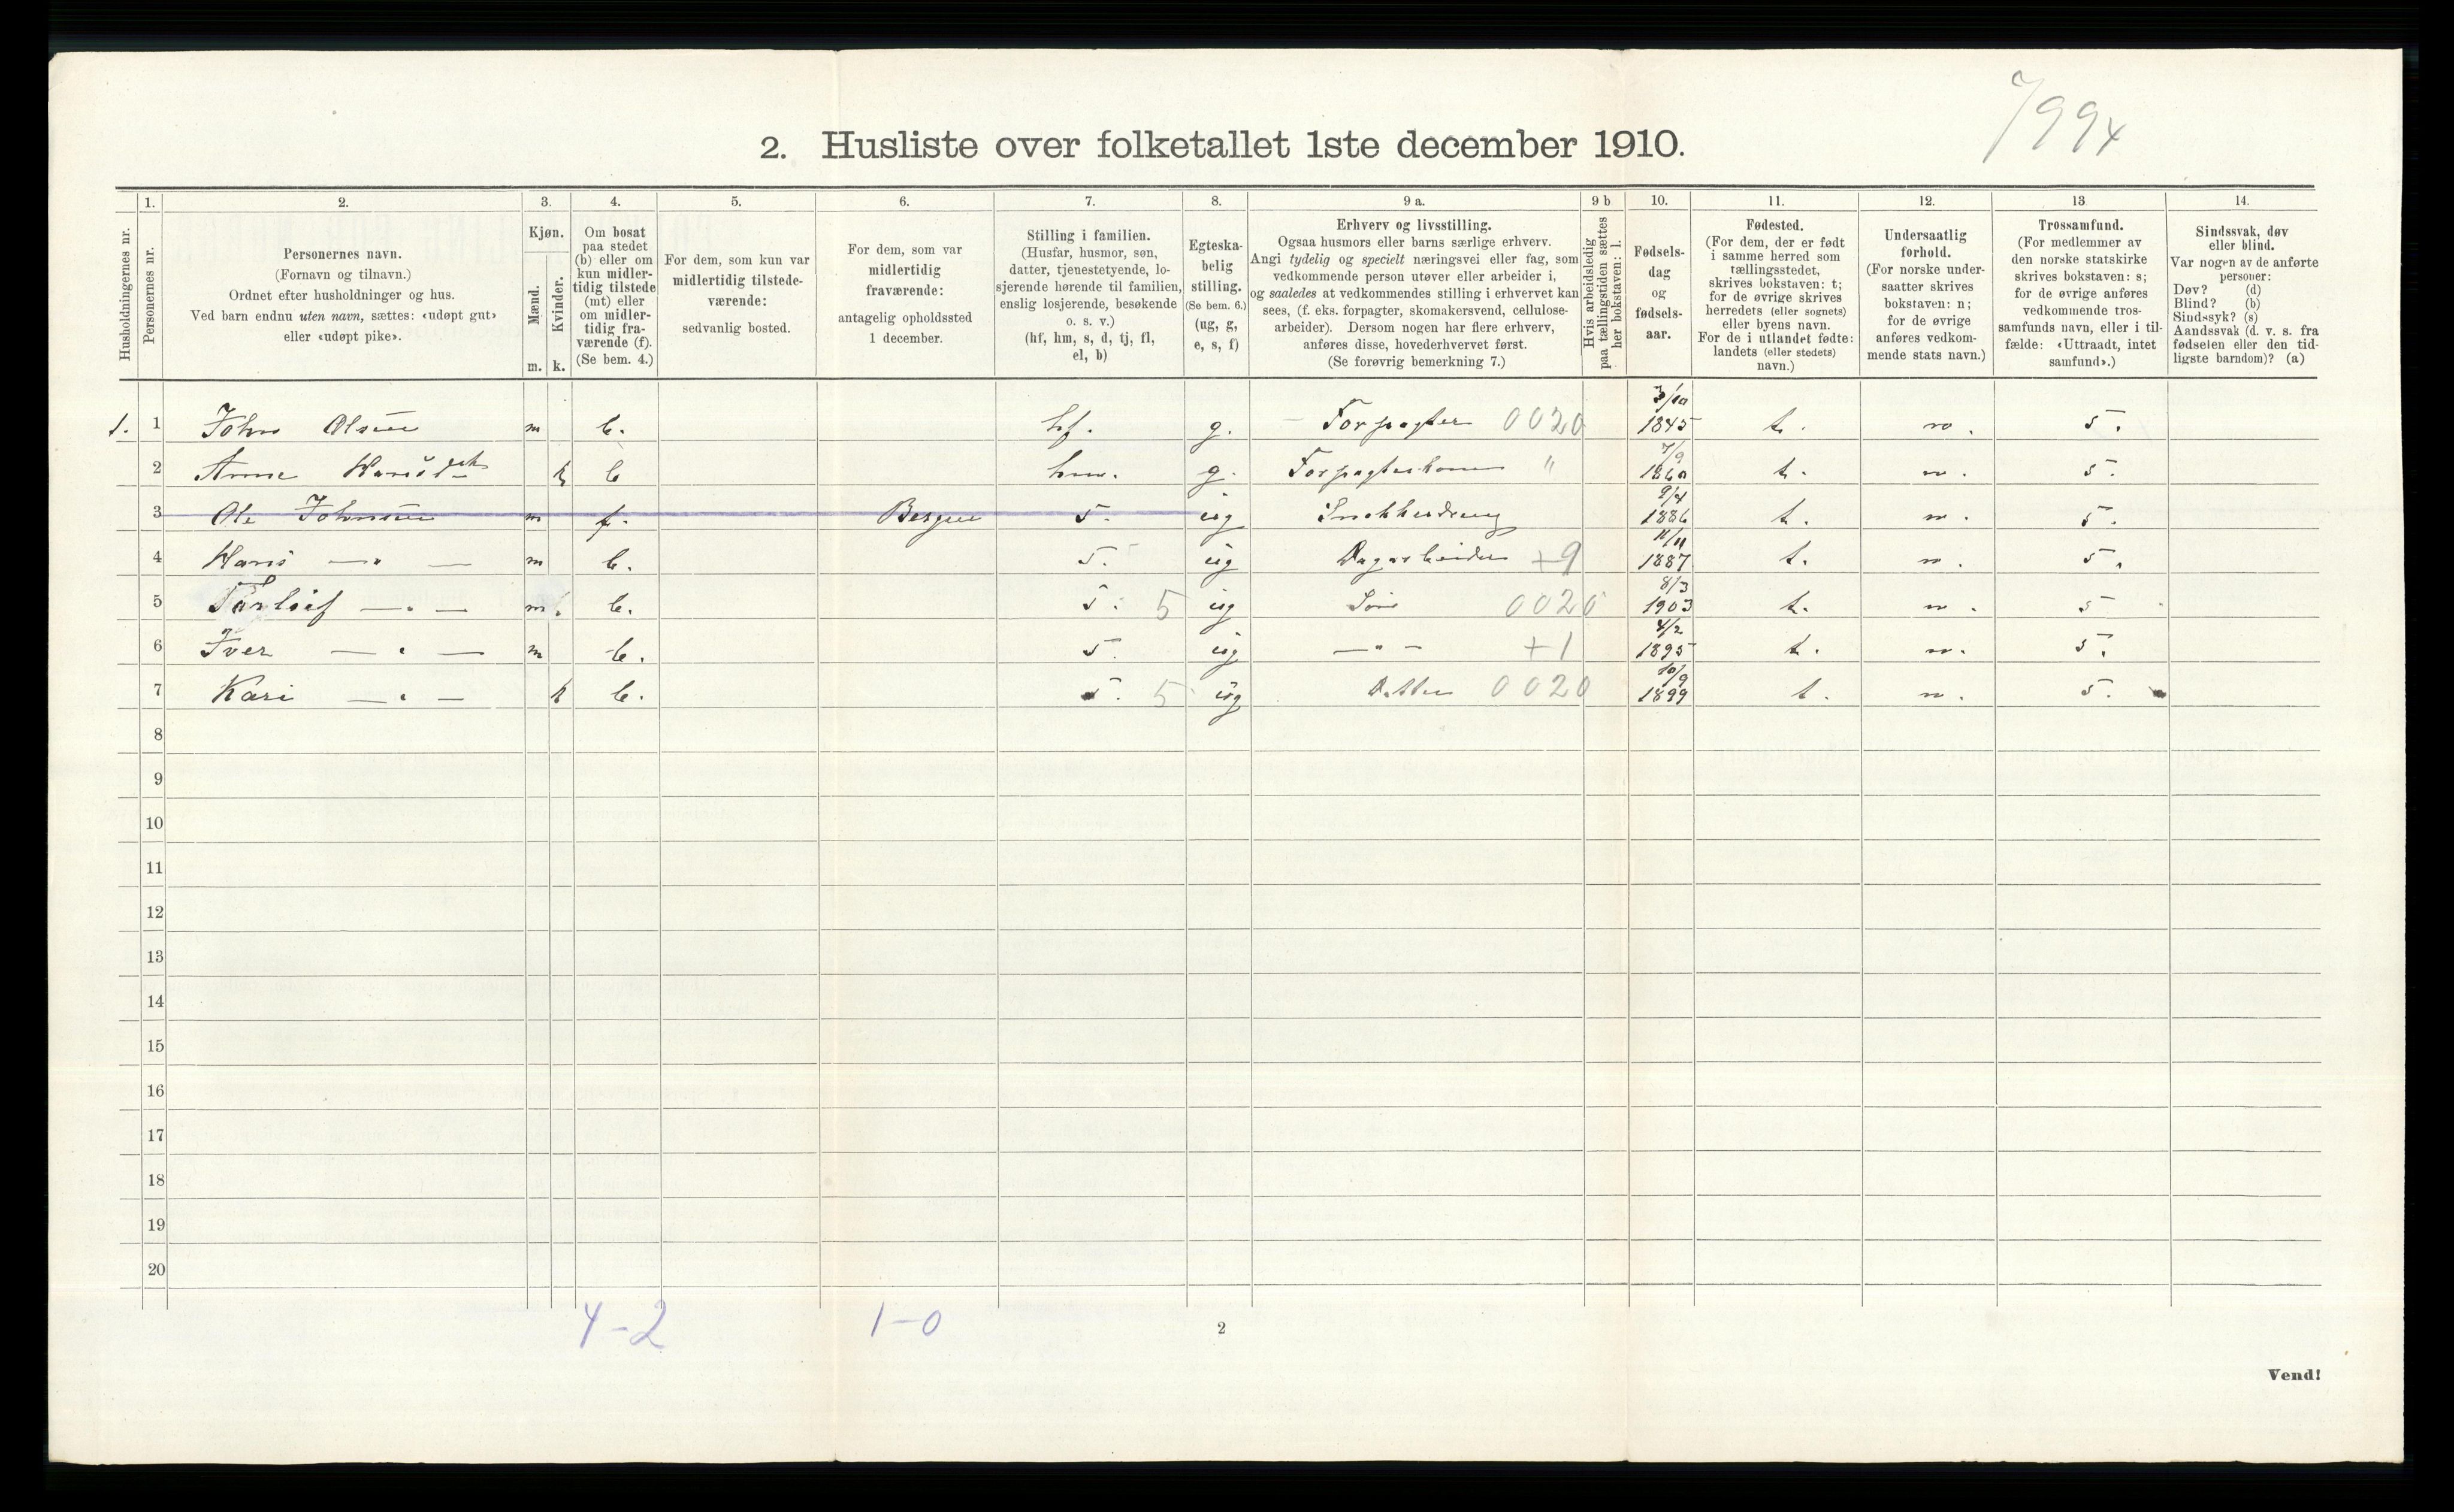 7994
2. Husliste over folketallet 1ste december 1910.
Husholdningernes nr.
1. Personernes nr.
2. Personernes navn. (Fornavn og tilnavn.) Ordnet efter husholdninger og hus. Ved barn endnu uten navn, sættes: «udøpt gut» eller «udøpt pike».
3. Kjøn. Mænd. m. Kvinder. k.
4. Om bosat paa stedet (b) eller om kun midler-tidig tilstede (mt) eller om midler-tidig fra-værende (f). (Se bem. 4.)
5. For dem, som kun var midlertidig tilstede-værende: sedvanlig bosted.
6. For dem, som var midlertidig fraværende: antagelig opholdssted 1 december.
7. Stilling i familien. (Husfar, husmor, søn, datter, tjenestetyende, lo-sjerende hørende til familien, enslig losjerende, besøkende o. s. v.) (hf, hm, s, d, tj, fl, el, b)
8. Egteska-belig stilling. (Se bem. 6.) (ug, g, e, s, f)
9 a. Erhverv og livsstilling. Ogsaa husmors eller barns særlige erhverv. Angi tydelig og specielt næringsvei eller fag, som vedkommende person utøver eller arbeider i, og saaledes at vedkommendes stilling i erhvervet kan sees, (f. eks. forpagter, skomakersvend, cellulose-arbeider). Dersom nogen har flere erhverv, anføres disse, hovederhvervet først. (Se forøvrig bemerkning 7.)
9 b Hvis arbeidsledig paa tællingstiden sættes her bokstaven: l.
10. Fødsels-dag og fødsels-aar.
11. Fødested. (For dem, der er født i samme herred som tællingsstedet, skrives bokstaven: t; for de øvrige skrives herredets (eller sognets) eller byens navn. For de i utlandet fødte: landets (eller stedets) navn.)
12. Undersaatlig forhold. (For norske under-saatter skrives bokstaven: n; for de øvrige anføres vedkom-mende stats navn.)
13 Trossamfund. (For medlemmer av den norske statskirke skrives bokstaven: s; for de øvrige anføres vedkommende tros-samfunds navn, eller i til-fælde: «Uttraadt, intet samfund».)
14. Sindssvak, døv eller blind. Var nogen av de anførte personer: Døv? (d) Blind? (b) Sindssyk? (s) Aandssvak (d. v. s. fra fødselen eller den tid-ligste barndom)? (a)
1. 1 John Olsen m b. hf. g. Forpagter 0020 3/10 1845 t. n. s.
2 Anne Hansdtr k b hm. g. Forpagterkone " 7/9 1860 t. n. s.
3 Ole Johnsen m f. Bergen s. ug Snekkerdreng 9/4 1886 t. n. s.
4 Hans — " — m b. s. ug Dagarbeider +9 11/11 1887 t. n. s.
5 Torleif — " — m. b. s. 5 ug Søn 0020 8/3 1903 t. n. s
6 Iver — " — m b. s. ug — " — +1 4/2 1895 t. n. s.
7 Kari — " — k b. 5 ug Datter 0020 10/9 1899 t. n. s.
8
9
10
11
12
13
14
15
16
17
18
19
20
4-2 1-0
2
Vend!